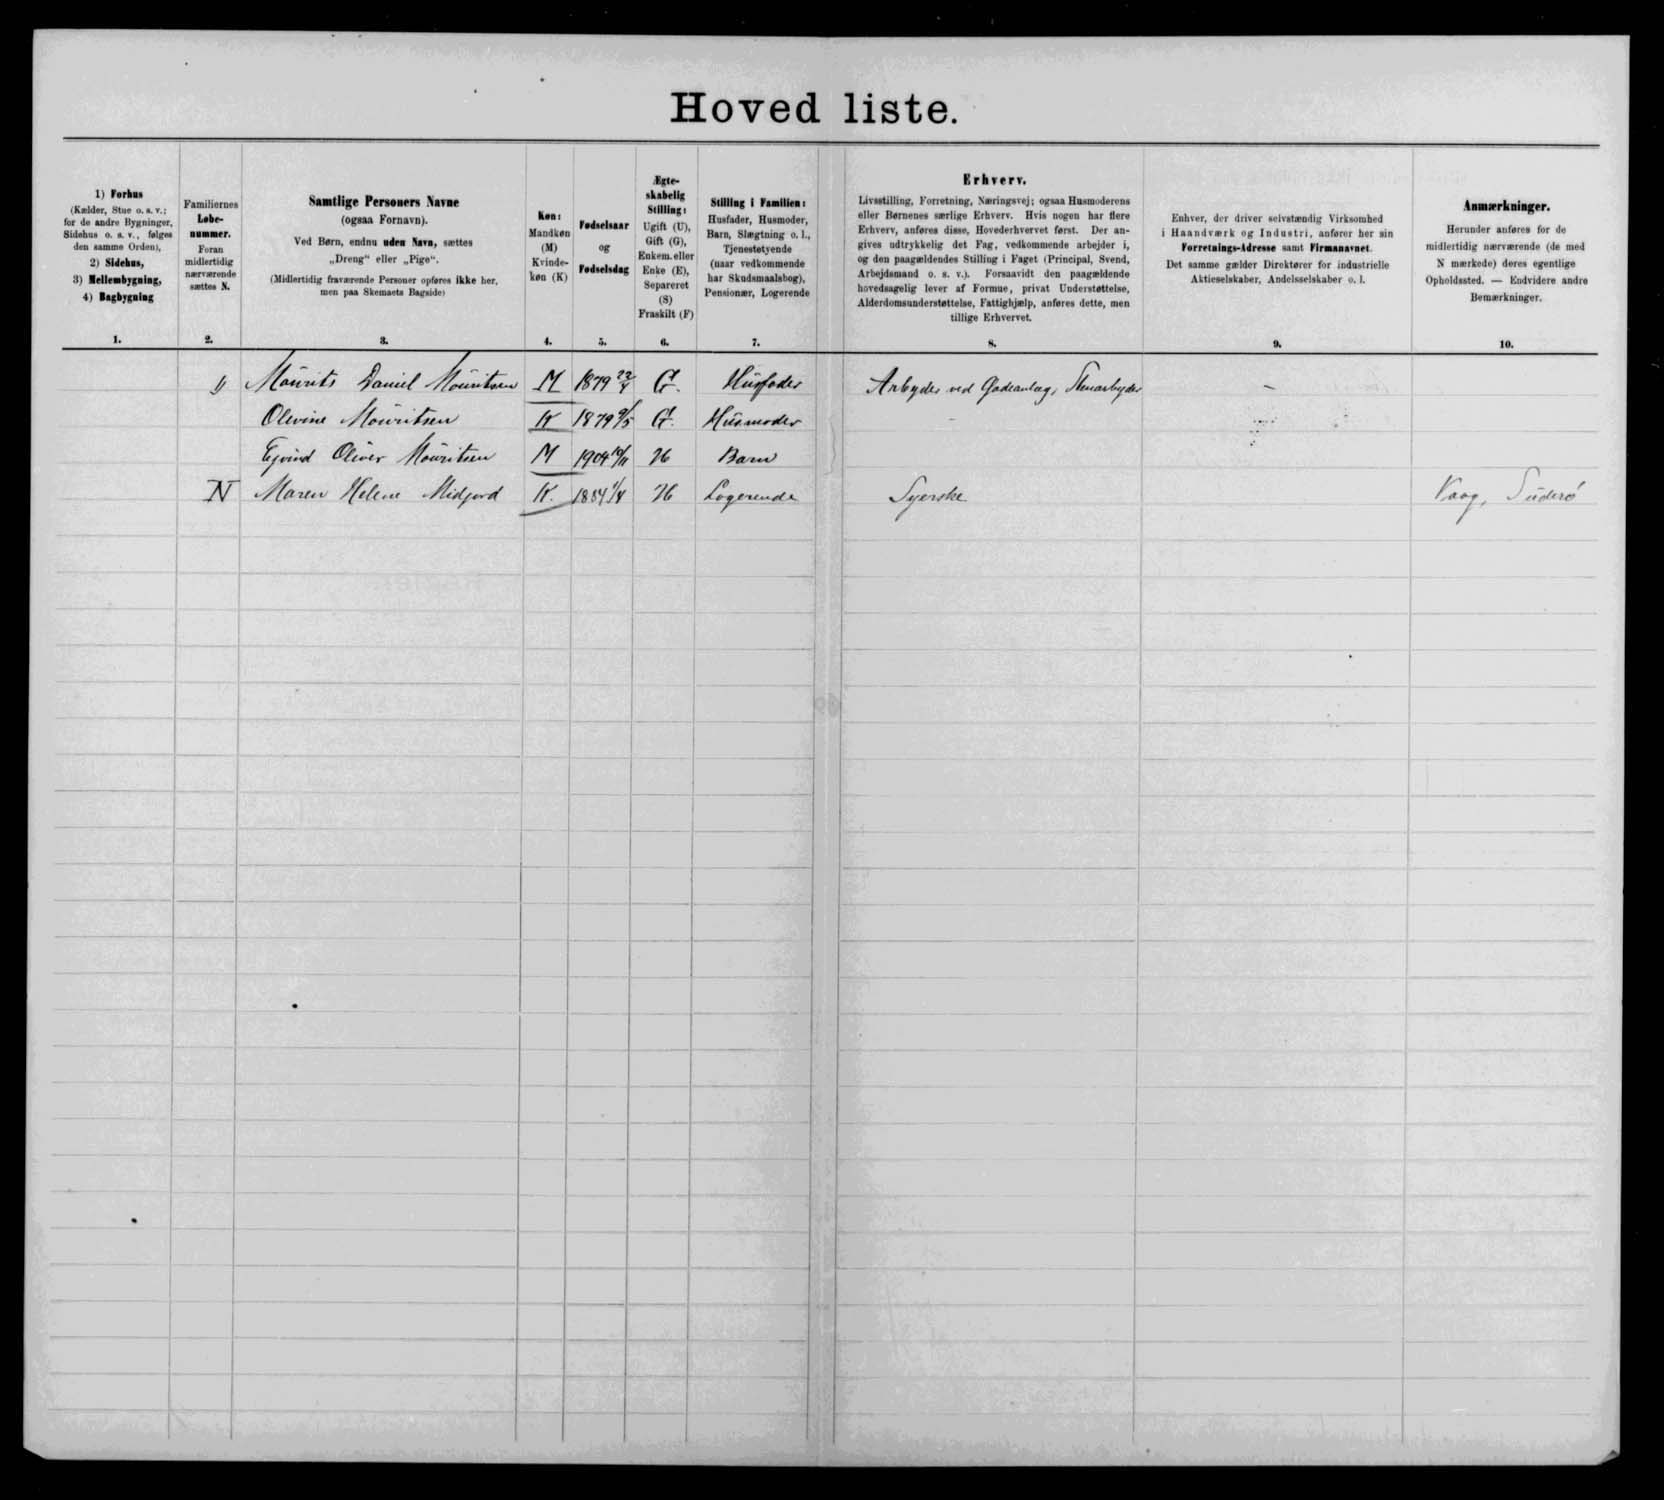 Hoved liste.
1) Forhus
(Kælder, Stue o. s. v.;
for de andre Bygninger,
Sidehus o. s. v., følges
den samme Orden),
2) Sidehus,
3) Mellembygning,
4) Bagbygning
1.
Familiernes
Løbe-
nummer.
Foran
midlertidig
nærværende
sættes N.
2.
Samtlige Personers Navne
(ogsaa Fornavn).
Ved Børn, endnu uden Navn, sættes
„Dreng“ eller „Pige“.
(Midlertidig fraværende Personer opføres ikke her,
men paa Skemaets Bagside)
3.
Køn:
Mandkøn
(M)
Kvinde-
køn (K)
4.
Fødselsaar
og
Fødselsdag
5.
Ægte-
skabelig
Stilling:
Ugift (U),
Gift (G),
Enkem. eller
Enke (E),
Separeret
(S)
Fraskilt (F)
6.
Stilling i Familien:
Husfader, Husmoder,
Barn, Slægtning o. l.,
Tjenestetyende
(naar vedkommende
har Skudsmaalsbog),
Pensionær, Logerende
7.
Erhverv.
Livsstilling, Forretning, Næringsvej; ogsaa Husmoderens
eller Børnenes særlige Erhverv. Hvis nogen har flere
Erhverv, anføres disse, Hovederhvervet først. Der an-
gives udtrykkelig det Fag, vedkommende arbejder i,
og den paagældendes Stilling i Faget (Principal, Svend,
Arbejdsmand o. s. v.). Forsaavidt den paagældende
hovedsagelig lever af Formue, privat Understøttelse,
Alderdomsunderstøttelse, Fattighjælp, anføres dette, men
tillige Erhvervet.
8.
Enhver, der driver selvstændig Virksomhed
i Haandværk og Industri, anfører her sin
Forretnings-Adresse samt Firmanavnet.
Det samme gælder Direktører for industrielle
Aktieselskaber, Andelsselskaber o. l.
9.
Anmærkninger.
Herunder anføres for de
midlertidig nærværende (de med
N mærkede) deres egentlige
Opholdssted. — Endvidere andre
Bemærkninger.
10.
1) Mourits Daniel Mouritsen M 1879 22/4 G. Husfader Arbejder ved Gadeanlæg, Stenarbejder —
Olevine Mouritsen K 1879 9/5 G. Husmoder
Ejvind Oliver Mouritsen M 1904 10/11 U Barn
N Maren Helene Midjord K. 1884 1/4 U Logerende Syerske Vaag, Süderø